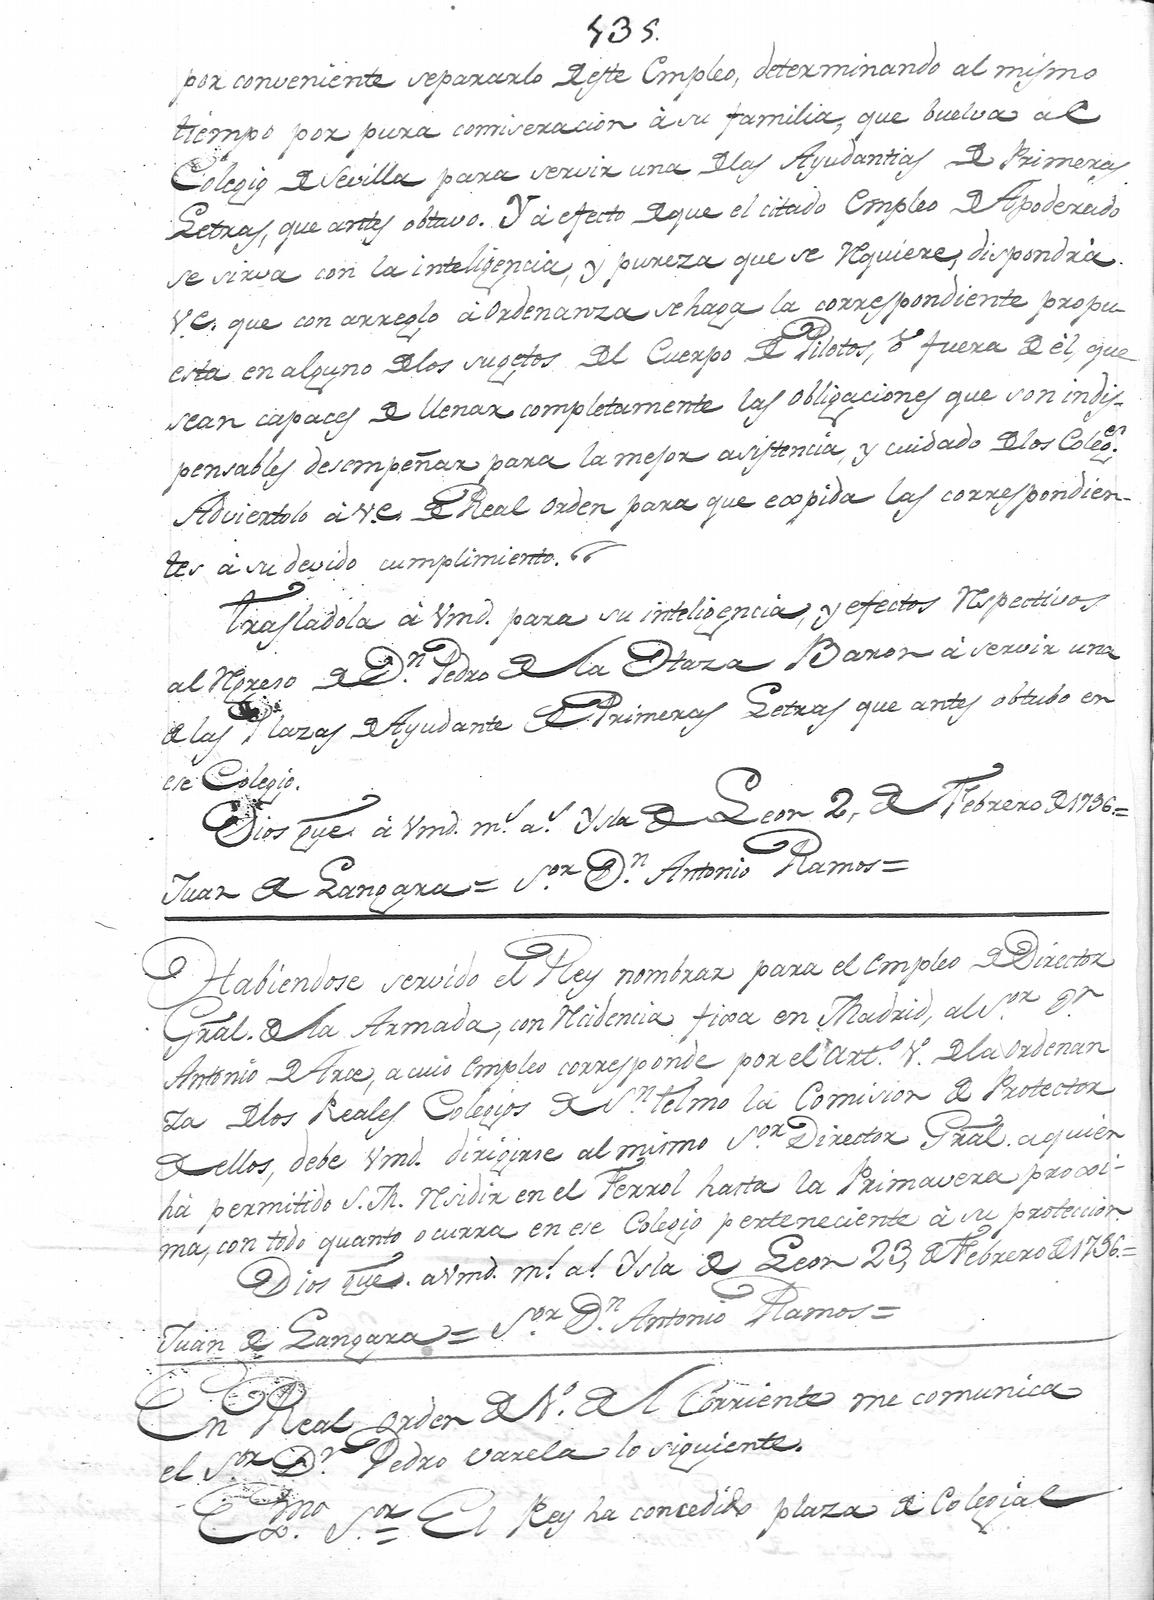 535.
por conveniente separarlo de este Empleo, determinando al mismo
tiempo por pura comiseracion à su familia, que buelva al
Colegio de Sevilla para servir una de las Ayudantias de Primeras
Letras, que antes obtuvo. Y à efecto de que el citado Empleo de Apoderado
se sirva con la inteligencia, y pureza que se requiere, dispondrà
V.E. que con arreglo à Ordenanza se haga la correspondiente propu-
esta en alguno de los sugetos del Cuerpo de Pilotos, ò fuera de èl, que
sean capaces de llenar completamente las obligaciones que son indis-
pensables desempeñar para la mejor asistencia, y cuidado de los Coleg.es
Adviertolo à V.E. de Real Orden para que expida las correspondien-
tes à su devido cumplimiento.
Trasladola à Vmd. para su inteligencia, y efectos respectivos
al regreso de Dn. Pedro de la Haza Baron à servir una
de las Plazas de Ayudante de Primeras Letras que antes obtubo en
ese Colegio.
Dios gue. à Vmd. ms. as. Ysla de Leon 2, de Febrero de 1796.=
Juan de Langara= Sor. Dn. Antonio Ramos=
Habiendose servido el Rey nombrar para el empleo de Director
Gral. de la Armada, con recidencia fixa en Madrid, al Sor. Dn.
Antonio de Arce, a cuio Empleo corresponde por el Arto. Vo. de la Ordenan
za de los Reales Colegios de Sn. Telmo la Comision de Protector
de ellos, debe Vmd. dirigirse al mismo Sor. Director Gral. a quien
hà permitido S.M. residir en el Ferrol hasta la Primavera proxi-
ma, con todo quanto ocurra en ese Colegio perteneciente à su proteccion.
Dios gue. a Vmd. ms. as. Ysla de Leon 23, de Febrero de 1796.=
Juan de Langara= Sor. Dn. Antonio Ramos=
En Real Orden de Vo. del Corriente me comunica
el Sor. Dn. Pedro Varela lo siguiente.
Exmo. Sor.= El Rey ha concedido plaza de Colegial